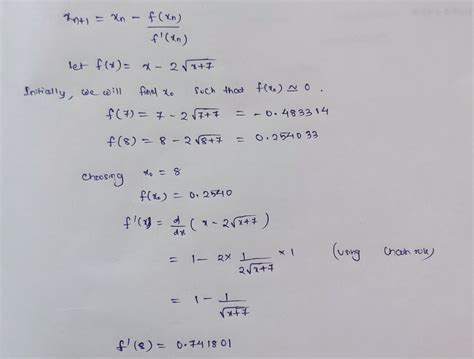 x_{n+1} = x_n - \frac{f(x_n)}{f'(x_n)}
let f(x) = x - 2\sqrt{x+7}
Initially, we will find x_0 such that f(x_0) ≃ 0.
f(7) = 7 - 2\sqrt{7+7} = -0.483314
f(8) = 8 - 2\sqrt{8+7} = 0.254033
choosing x_0 = 8
f(x_0) = 0.2540
f'(x) = \frac{d}{dx} (x - 2\sqrt{x+7})
= 1 - 2 × \frac{1}{2\sqrt{x+7}} × 1 (using chain rule)
= 1 - \frac{1}{\sqrt{x+7}}
f'(8) = 0.741801